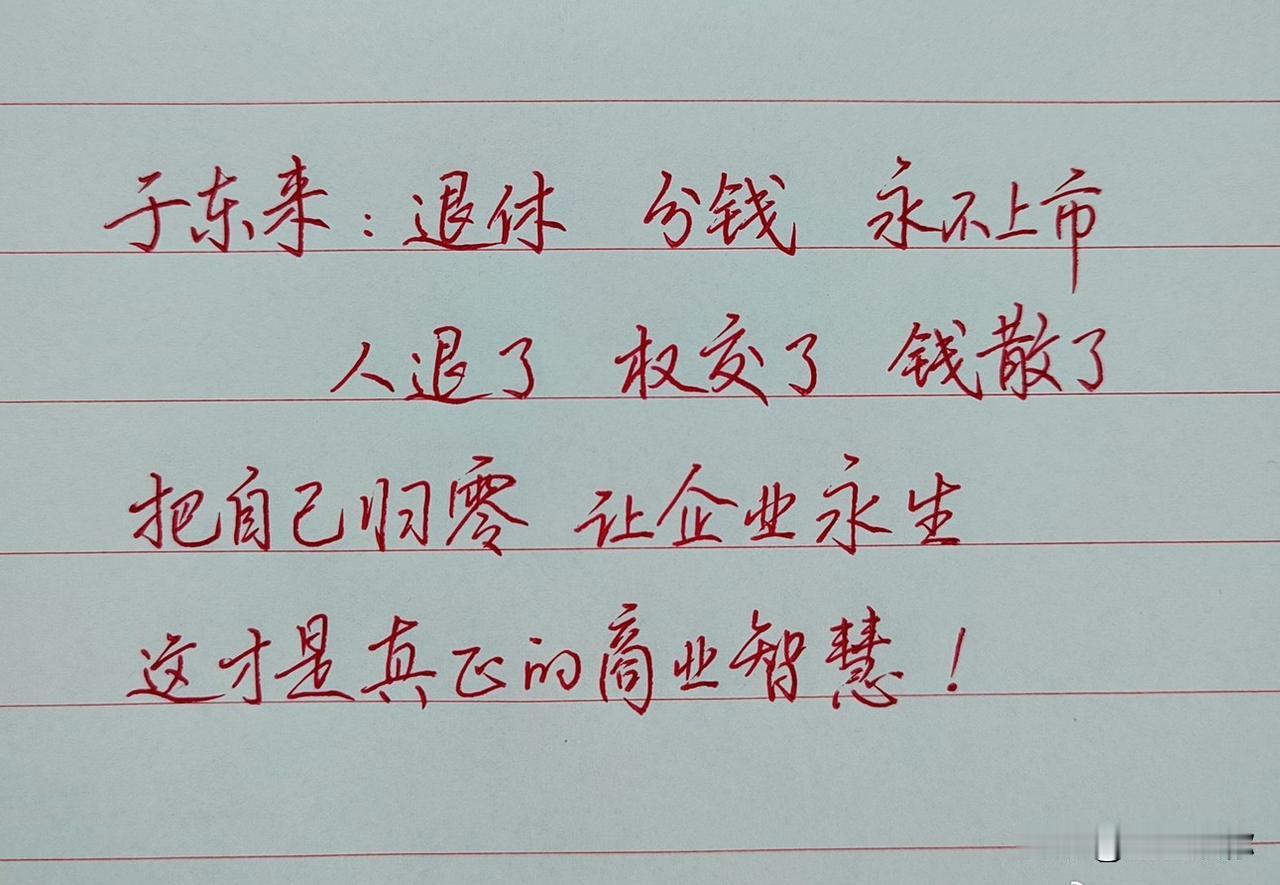 于东来：退休 分钱 永不上市
人退了 权交了 钱散了
把自己归零 让企业永生
这才是真正的商业智慧！